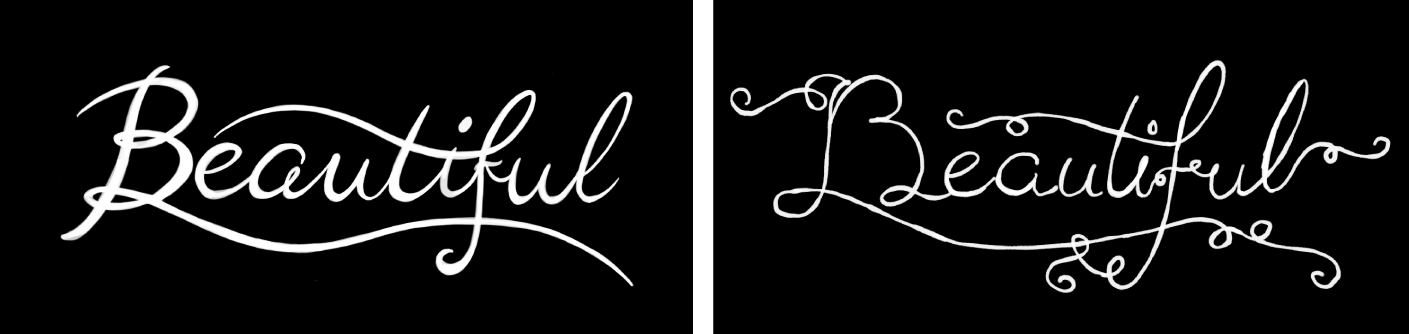 Beautiful Beautiful